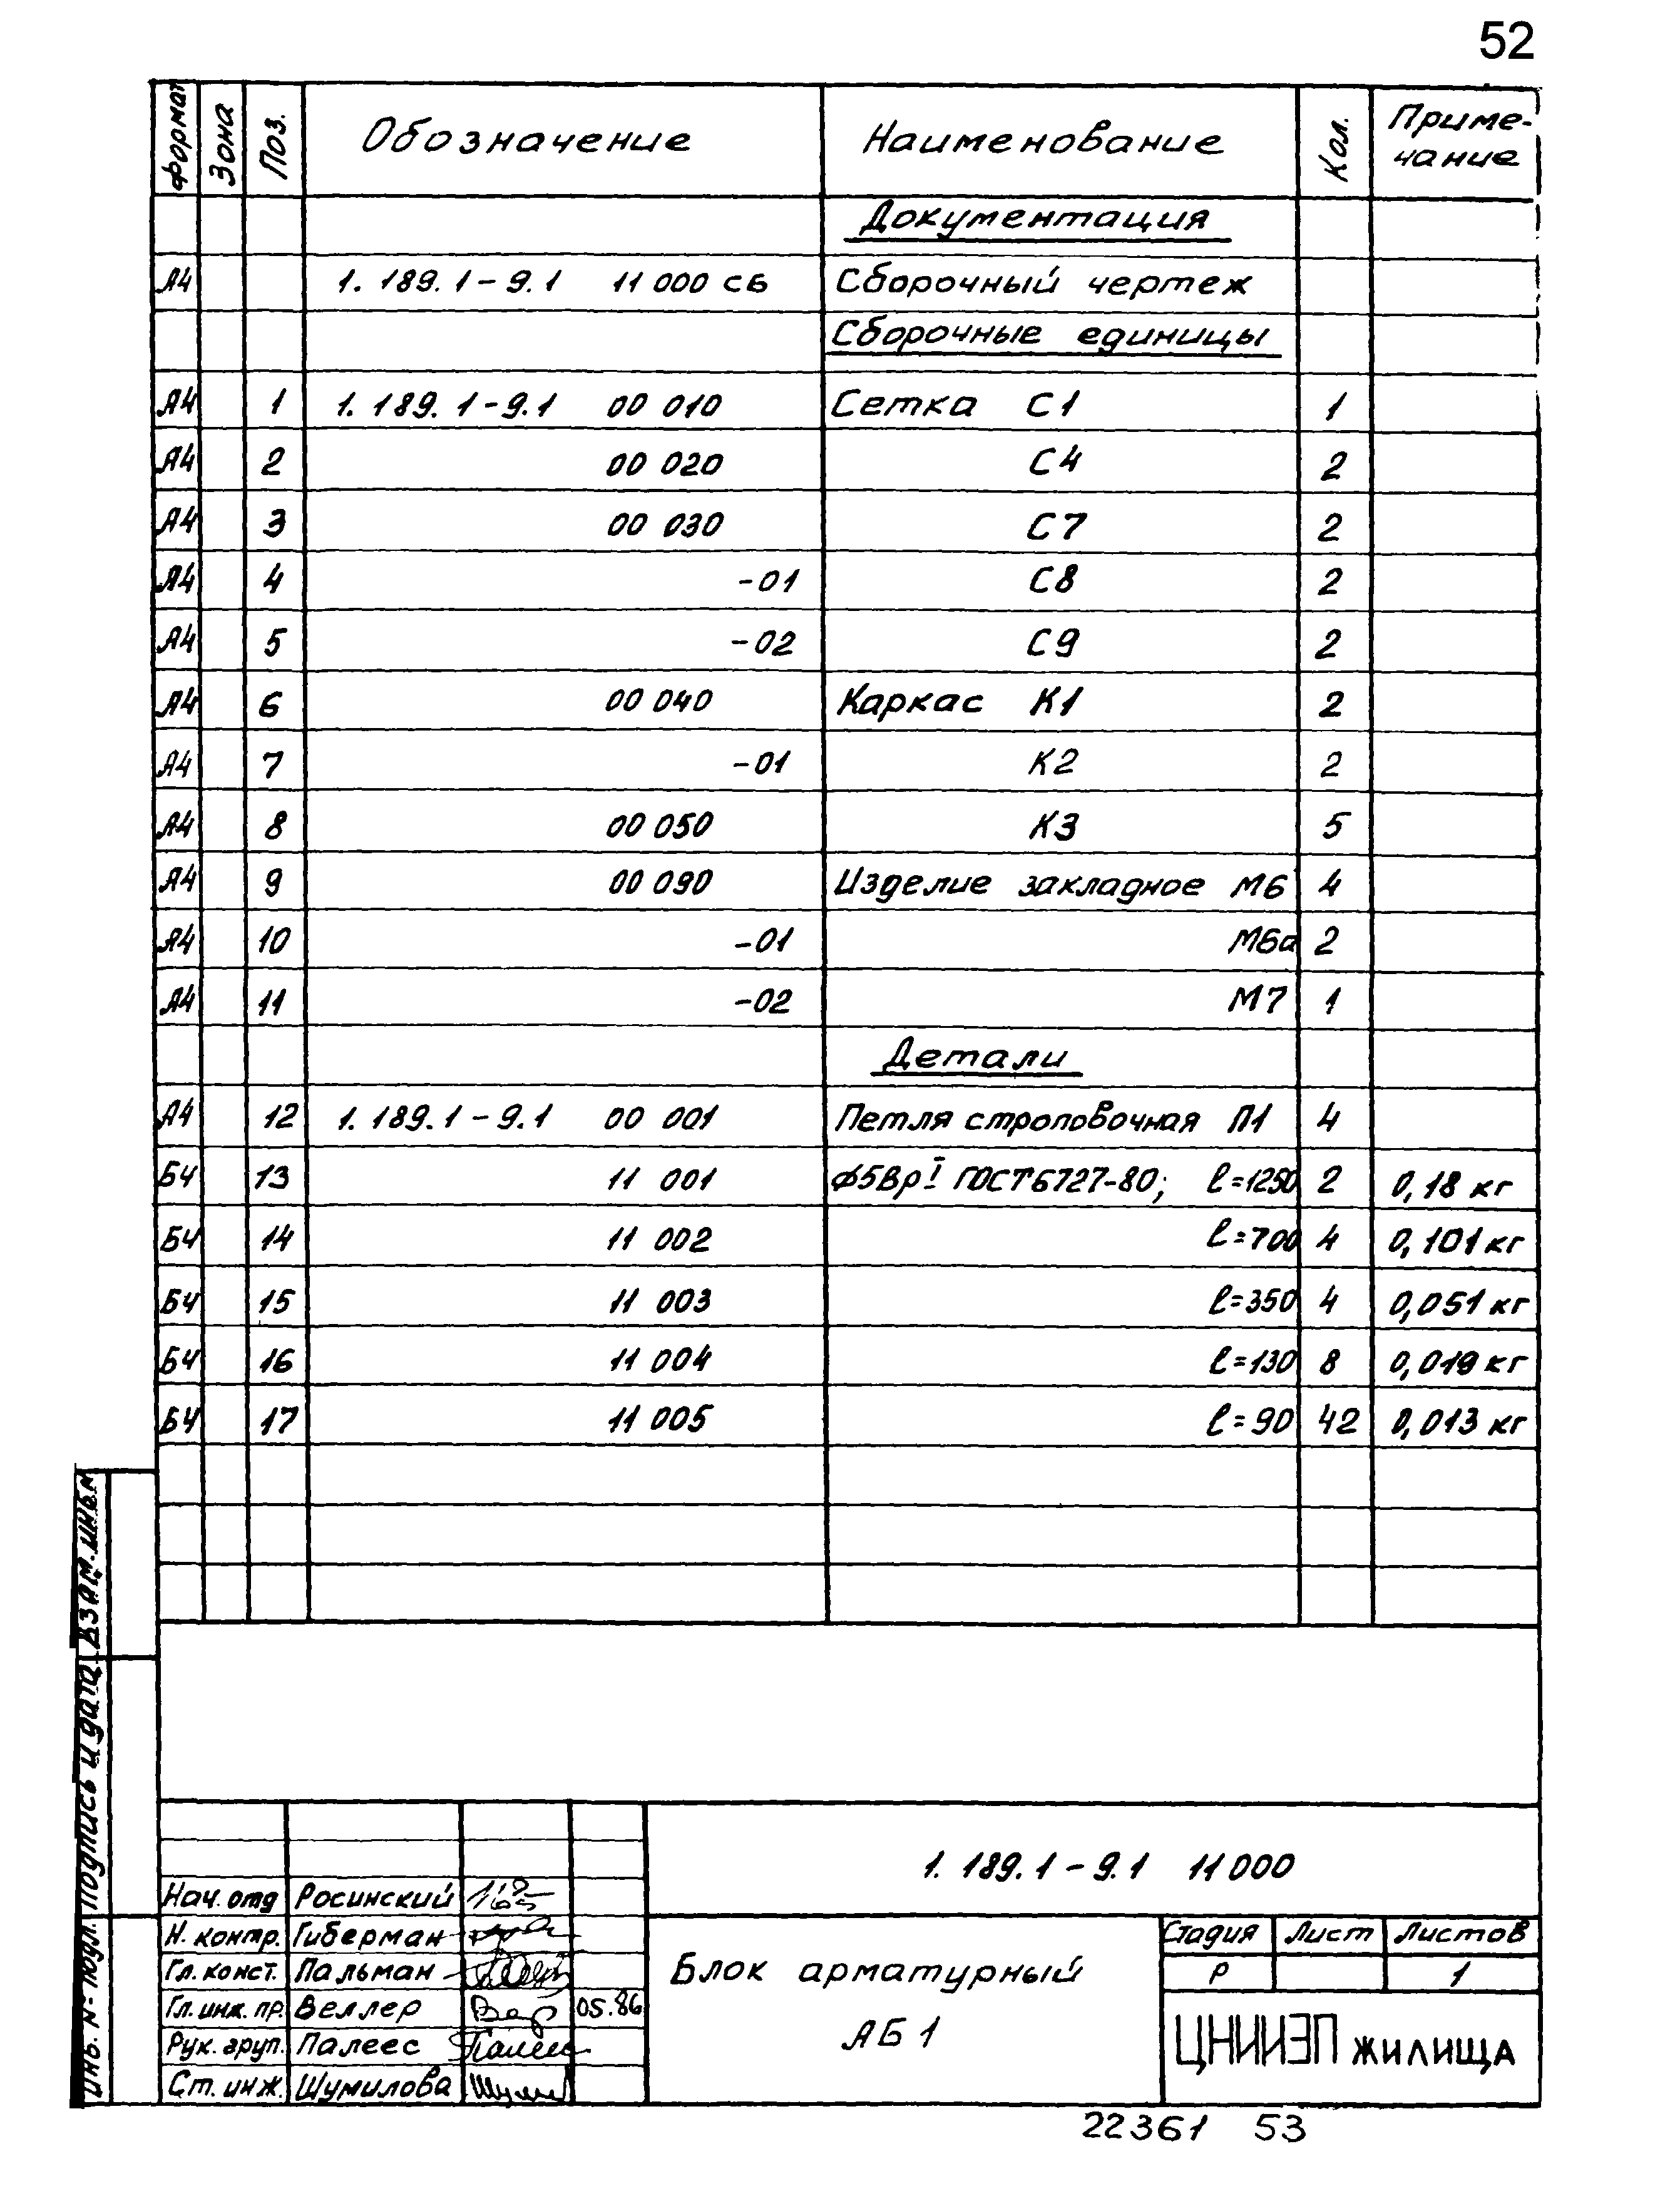 52
Формат Зона Поз. Обозначение Наименование Кол. Приме-
чание
Документация
А4 1.189.1-9.1 11 000 СБ Сборочный чертеж
Сборочные единицы
А4 1 1.189.1-9.1 00 010 Сетка С1 1
А4 2 00 020 С4 2
А4 3 00 030 С7 2
А4 4 -01 С8 2
А4 5 -02 С9 2
А4 6 00 040 Каркас К1 2
А4 7 -01 К2 2
А4 8 00 050 К3 5
А4 9 00 090 Изделие закладное М6 4
А4 10 -01 М6а 2
А4 11 -02 М7 1
Детали
А4 12 1.189.1-9.1 00 001 Петля строповочная П1 4
БЧ 13 11 001 ϕ5ВрI ГОСТ6727-80; ℓ=1250 2 0,18 кг
БЧ 14 11 002 ℓ=700 4 0,101 кг
БЧ 15 11 003 ℓ=350 4 0,051 кг
БЧ 16 11 004 ℓ=130 8 0,019 кг
БЧ 17 11 005 ℓ=90 42 0,013 кг
Взам. инв. №
Подпись и дата
Инв. № подл.
1.189.1-9.1 11 000
Нач. отд Росинский
Н. контр. Гиберман
Гл. конст. Пальман
Гл. инж. пр. Веллер 05.86
Рук. груп. Палеес
Ст. инж. Шумилова
Блок арматурный
АБ 1
Стадия Лист Листов
Р 1
ЦНИИЭП жилища
22361 53